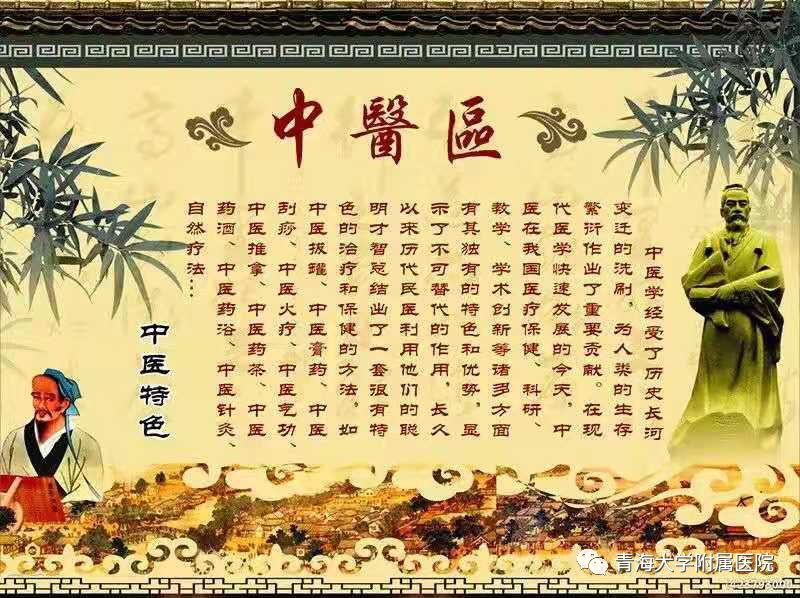 中醫區
中医学经受了历史长河
变迁的洗刷，为人类的生存
繁衍作出了重要贡献。在现
代医学快速发展的今天，中
医在我国医疗保健、科研、
教学、学术创新等诸多方面
有其独有的特色和优势，显
示了不可替代的作用，长久
以来历代民医利用他们的聪
明才智总结出了一套很有特
色的治疗和保健的方法，如
中医拔罐、中医膏药、中医
刮痧、中医火疗、中医气功、
中医推拿、中医药茶、中医
药酒、中医药浴、中医针灸、
自然疗法…
中医特色
青海大学附属医院